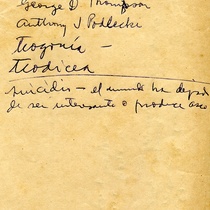 George D. Thompson
Anthony J Podlecki
Teogonía –
Teodicea
suicidio – el mundo ha dejado
de ser interesante o produce asco